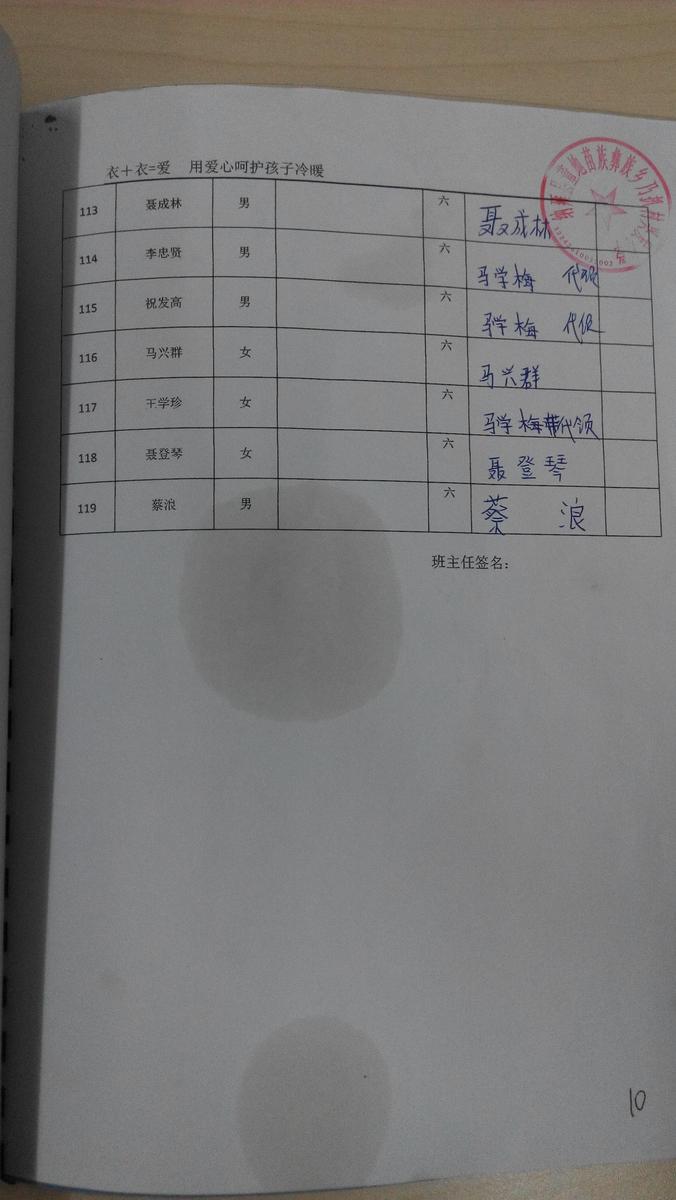 衣＋衣=爱 用爱心呵护孩子冷暖
113 聂成林 男 六 聂成林
114 李忠贤 男 六 马学梅 代领
115 祝发高 男 六 马学梅 代领
116 马兴群 女 六 马兴群
117 王学珍 女 六 马学梅带代领
118 聂登琴 女 六 聂登琴
119 蔡浪 男 六 蔡浪
班主任签名：
苗族彝族乡
10